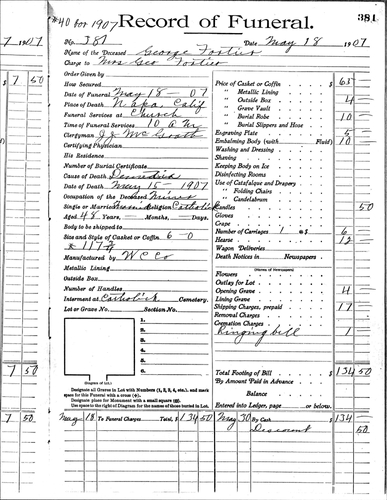 #40 for 1907 Record of Funeral. 381
No. 381 Date May 18 1907
Name of the Deceased George Fortier
Charge to Mrs Geo Fortier
Order Given by
How Secured
Date of Funeral May 18 - 07
Place of Death Napa, Calif
Funeral Services at Church
Time of Funeral Services 10 A M
Clergyman
Certifying Physician
His Residence
Number of Burial Certificate
Cause of Death
Date of Death May 15 - 1907
Occupation of the Deceased Miner
Single or Married Married Religion Catholic
Aged 48 Years, — Months, — Days.
Body to be shipped to
Size and Style of Casket or Coffin 6 - 0
# 117 1/2
Manufactured by W C Co
Metallic Lining
Outside Box
Number of Handles
Interment at Catholic Cemetery.
Lot or Grave No. Section No.
1.
2.
3.
4.
5.
6.
(Diagram of Lot)
Designate all Graves in Lot with Numbers (1, 2, 3, 4, etc.), and mark
space for this Funeral with a cross (+).
Designate place for Monument with a small square (□).
Use space to right of Diagram for the names of those buried in Lot.
Price of Casket or Coffin $ 65
" Metallic Lining
" Outside Box 4
" Grave Vault
" Burial Robe 10
" Burial Slippers and Hose
Engraving Plate 5
Embalming Body (with Fluid) 10
Washing and Dressing
Shaving
Keeping Body on Ice
Disinfecting Rooms
Use of Catafalque and Drapery
" Folding Chairs
" Candelabrum
Candles 50
Gloves
Crape
Number of Carriages 1 @ $ 6
Hearse 12
Wagon Deliveries
Death Notices in Newspapers
(Names of Newspapers)
Flowers
Outlay for Lot
Opening Grave 4
Lining Grave
Shipping Charges, prepaid 17
Removal Charges
Cremation Charges
Ringing bill 1
Total Footing of Bill $ 134 50
By Amount Paid in Advance
Balance
Entered into Ledger, page or below.
May 18 To Funeral Charges Total, $ 134 50 May 30 By Cash $ 134
Discount 50
7 1907
$ 7 50
7 50
7 50